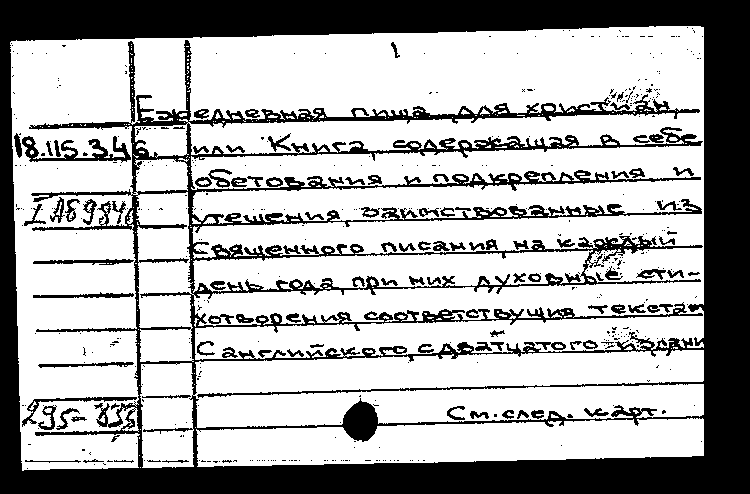 1
Ежедневная пища для христиан,
18.115.3.46. или Книга, содержащая в себе
обетования и подкрепления и
утешения, заимствованные из
Священного писания, на каждый
день года, при них духовные сти-
хотворения, соответствущия текстам
С английского, сдватцатого издани
295-833
См. след. карт.